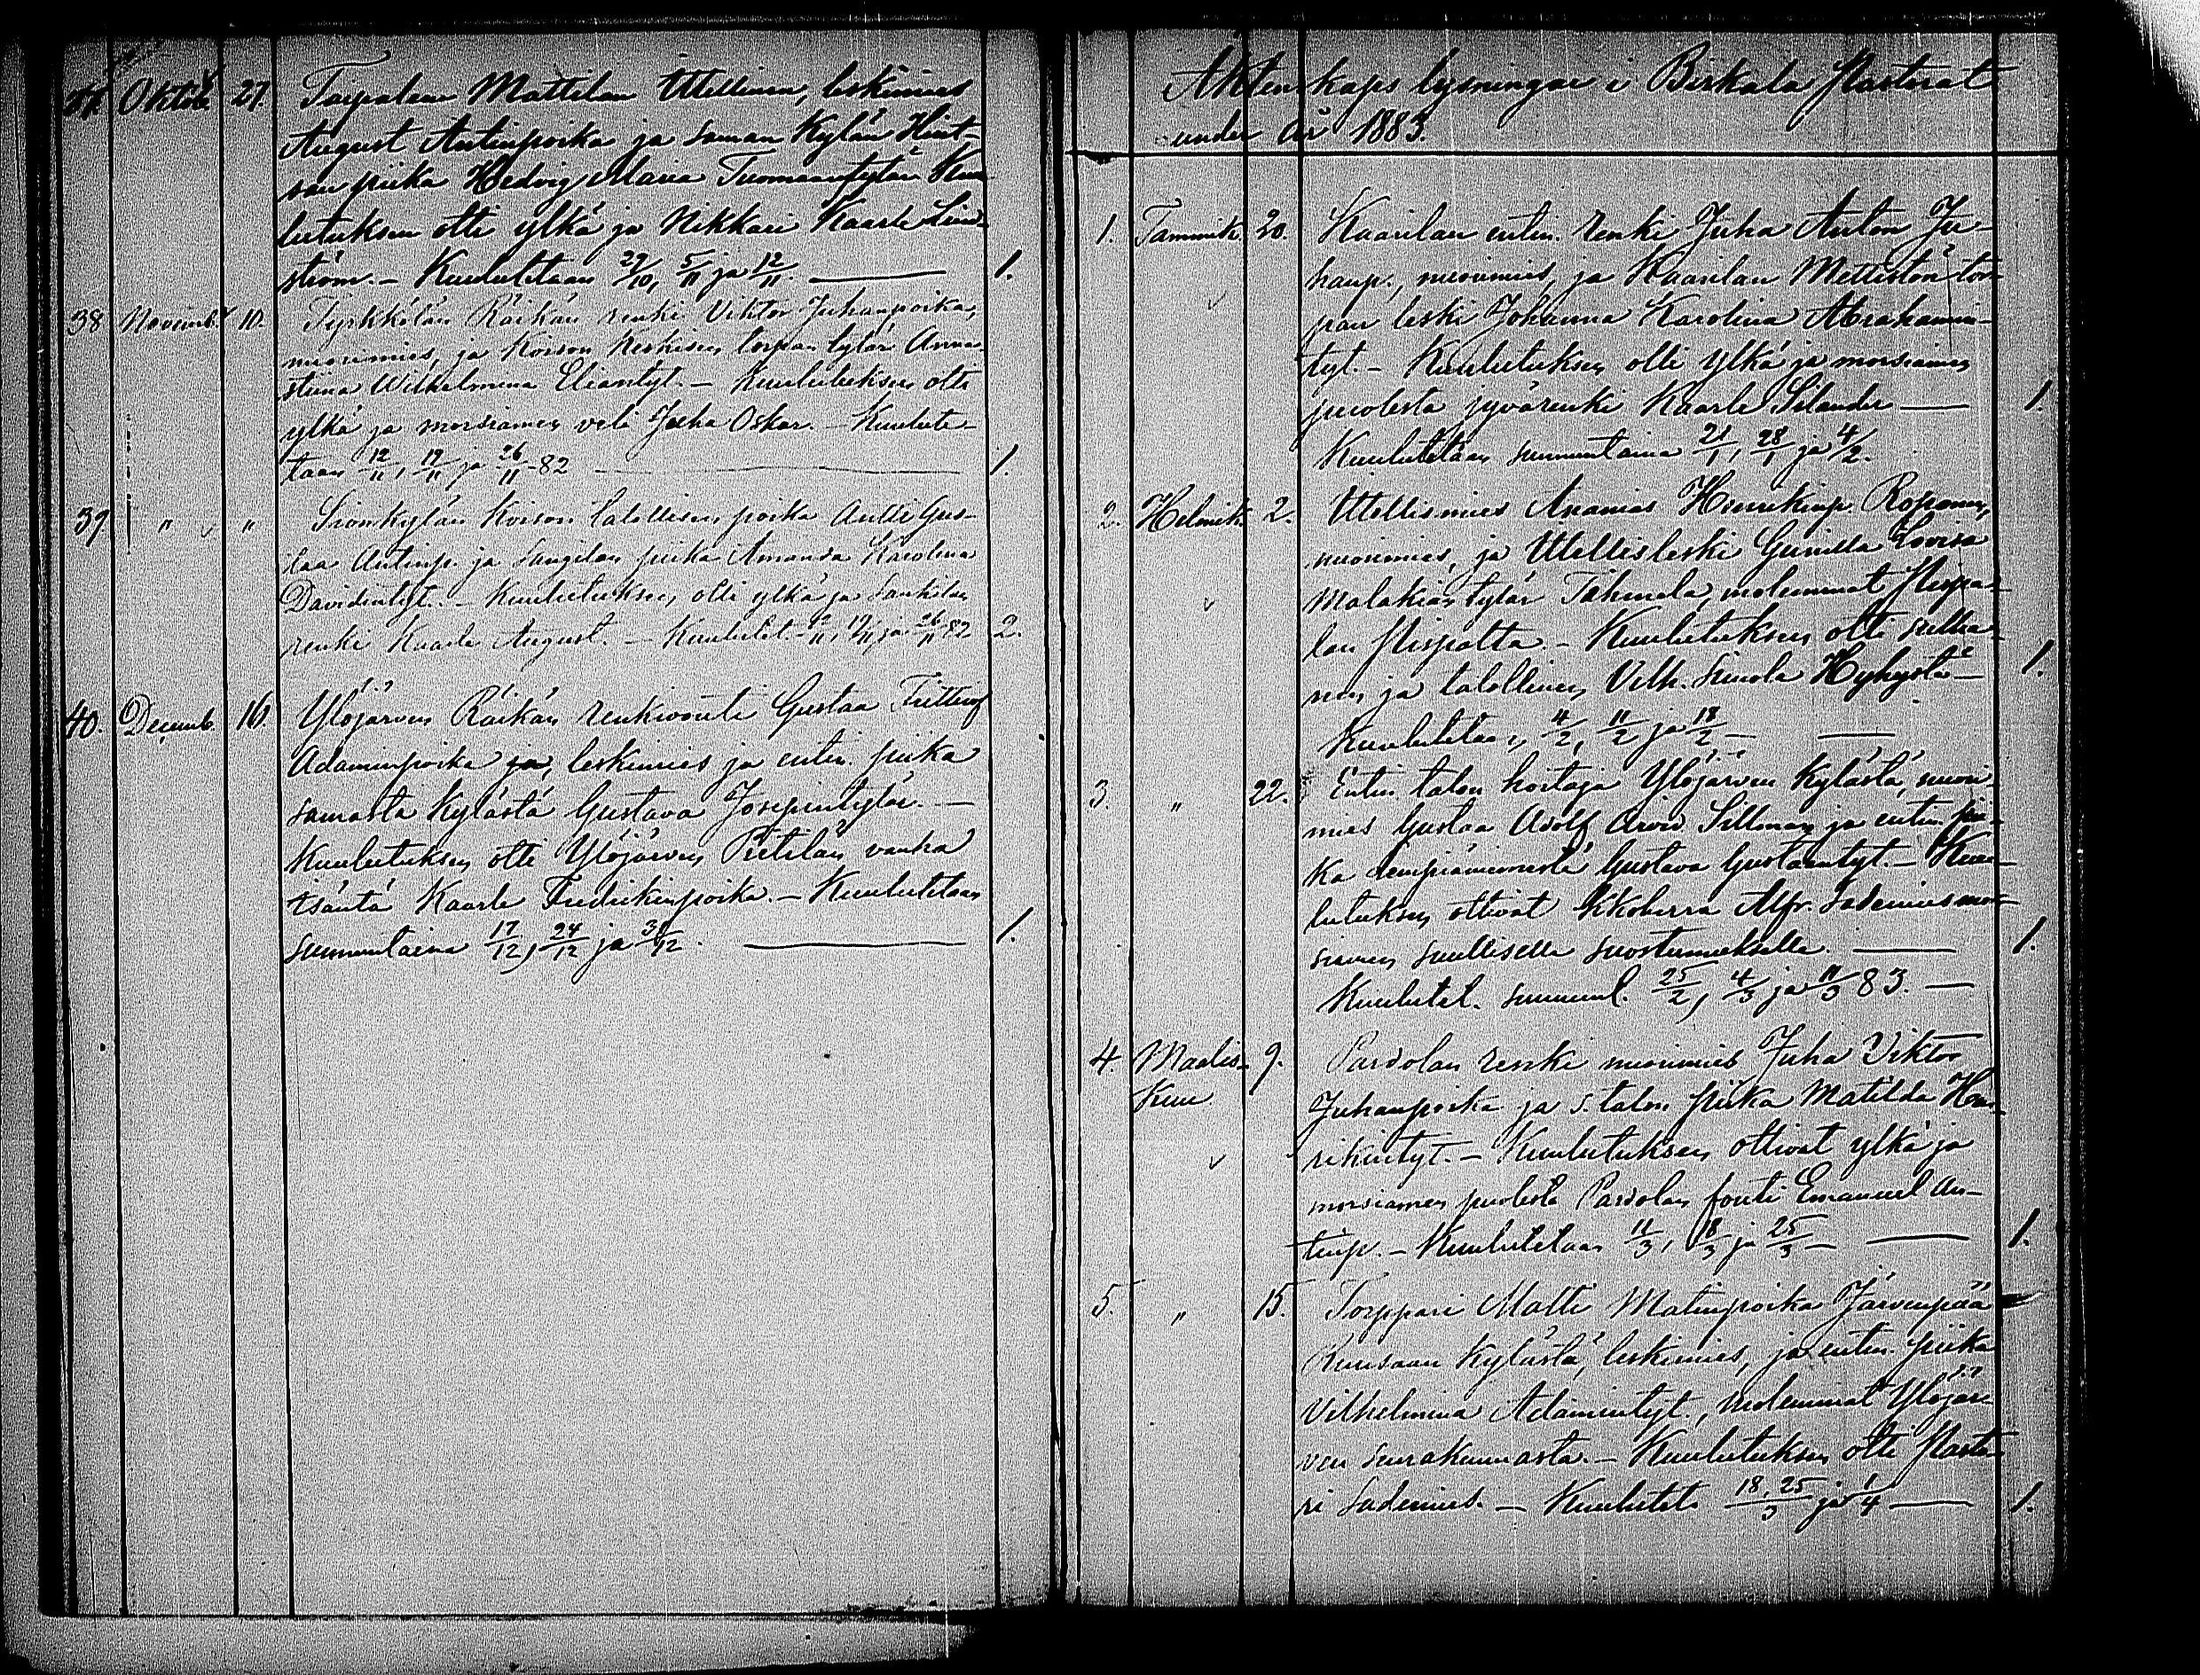 37. Oktob. 27. Torpolan Mattilan Itellinen, leskimies
August Antinpoika ja saman Kylän Hint-
san piika Hedvig Maria Tuomaantytär Kuu-
lutuksen otti ylkä ja Nikkari Kaarle Lind-
ström. – Kuulutetaan 29/10, 5/11 ja 12/11. — 1.
38 Novemb. 10. Tyrkkölän Räikän renki Viktor Juhanpoika,
nuorimies, ja Koison Keskisen torpan tytär Anna
Stiina Wilhelmina Eliantyt. – Kuulutuksen otti
ylkä ja morsiamen veli Juha Oskar. – Kuulute-
taan 12/11, 19/11 ja 26/11 -82 — 1.
39 " " Siionkylän Koison talollisen poika Antti Gus-
taa Antinp. ja piika Amanda Karolina
Davidintyt. – Kuulutuksen otti ylkä ja
renki Kaarle August. – Kuulutet. 12/11, 19/11 ja 26/11 82 2.
40. Decemb. 16. Ylöjärven Räikän renkivouti Gustaa
Adaminpoika ja, leskimies ja entin. piika
samasta Kylästä Gustava Josepintytär. —
Kuulutuksen otti Ylöjärven Pietilän vanha
isäntä Kaarle Fredrikinpoika. – Kuulutetaan
sunnuntaina 17/12, 24/12 ja 31/12. — 1.
Äktenskaps lysningar i Birkala Pastorat
under År 1883.
1. Tammik. 20. Kaarilan entin. renki Juha Anton Ju-
hanp., nuorimies, ja Kaarilan Mettistön tor-
pan leski Johanna Karolina Abrahamin-
tyt. – Kuulutuksen otti ylkä ja morsiamen
puolesta jyvärenki Kaarle Selander — 1.
Kuulutetaan sunnuntaina 21/1, 28/1 ja 4/2.
2. Helmik. 2. Itellismies Ananias Henrikinp. Roponen,
nuorimies, ja Itellisleski Gunilla Lovisa
Malakiantytär Tähenelä, molemmat Pispa-
lan Pispalta. – Kuulutuksen otti sulha-
nen ja talollinen Vilh. Simola Hyhystä — 1.
Kuulutetaan 4/2, 11/2 ja 18/2 —
3. " 22. Entin. talon hoitaja Ylöjärven Kylästä, nuori-
mies Gustaa Adolf Arvid Sillman ja entin. pii-
ka Gustava Gustaantyt. – Kuu-
lutuksen ottivat Kkoherra Alfr. Sadenius mor-
siamen suullisella suostumuksella. — 1.
Kuulutet. sunnunt. 25/2, 4/3 ja 11/3 83. —
4. Maalis- 9. Parvolan renki nuorimies Juha Viktor
Kuu Juhanpoika ja s. talon piika Matilda Hen-
rikintyt. – Kuulutuksen ottivat ylkä ja
morsiamen puolesta Parvolan fouti Emanuel An-
tinp. – Kuulutetaan 11/3, 18/3 ja 25/3 — 1.
5. " 15. Torppari Matti Matinpoika Järvenpää
Runsaan Kylästä, leskimies, ja entin. piika
Vilhelmina Adamintyt., molemmat Ylöjär-
ven seurakunnasta. – Kuulutuksen otti Pasto-
ri Sadenius. – Kuulutet. 18, 25/3 ja 1/4 — 1.